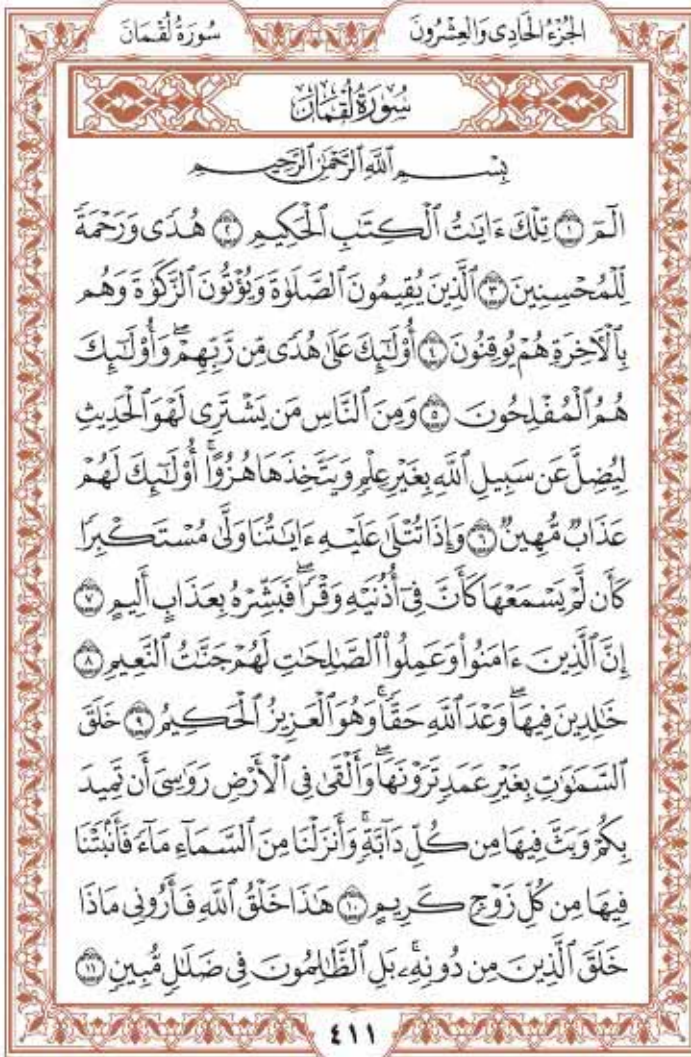 سُورَةُ لُقْمَانَ الجُزْءُ الحَادِى وَالعِشْرُونَ
سُورَةُ لُقْمَانَ
بِسْمِ ٱللَّهِ ٱلرَّحْمَٰنِ ٱلرَّحِيمِ
الٓمٓ ١ تِلْكَ ءَايَٰتُ ٱلْكِتَٰبِ ٱلْحَكِيمِ ٢ هُدًى وَرَحْمَةً
لِّلْمُحْسِنِينَ ٣ ٱلَّذِينَ يُقِيمُونَ ٱلصَّلَوٰةَ وَيُؤْتُونَ ٱلزَّكَوٰةَ وَهُم
بِٱلْءَاخِرَةِ هُمْ يُوقِنُونَ ٤ أُو۟لَٰٓئِكَ عَلَىٰ هُدًى مِّن رَّبِّهِمْ ۖ وَأُو۟لَٰٓئِكَ
هُمُ ٱلْمُفْلِحُونَ ٥ وَمِنَ ٱلنَّاسِ مَن يَشْتَرِى لَهْوَ ٱلْحَدِيثِ
لِيُضِلَّ عَن سَبِيلِ ٱللَّهِ بِغَيْرِ عِلْمٍ وَيَتَّخِذَهَا هُزُوًا ۚ أُو۟لَٰٓئِكَ لَهُمْ
عَذَابٌ مُّهِينٌ ٦ وَإِذَا تُتْلَىٰ عَلَيْهِ ءَايَٰتُنَا وَلَّىٰ مُسْتَكْبِرًا
كَأَن لَّمْ يَسْمَعْهَا كَأَنَّ فِىٓ أُذُنَيْهِ وَقْرًا ۖ فَبَشِّرْهُ بِعَذَابٍ أَلِيمٍ ٧
إِنَّ ٱلَّذِينَ ءَامَنُوا۟ وَعَمِلُوا۟ ٱلصَّٰلِحَٰتِ لَهُمْ جَنَّٰتُ ٱلنَّعِيمِ ٨
خَٰلِدِينَ فِيهَا ۖ وَعْدَ ٱللَّهِ حَقًّا ۚ وَهُوَ ٱلْعَزِيزُ ٱلْحَكِيمُ ٩ خَلَقَ
ٱلسَّمَٰوَٰتِ بِغَيْرِ عَمَدٍ تَرَوْنَهَا ۖ وَأَلْقَىٰ فِى ٱلْأَرْضِ رَوَٰسِىَ أَن تَمِيدَ
بِكُمْ وَبَثَّ فِيهَا مِن كُلِّ دَآبَّةٍ ۚ وَأَنزَلْنَا مِنَ ٱلسَّمَآءِ مَآءً فَأَنۢبَتْنَا
فِيهَا مِن كُلِّ زَوْجٍ كَرِيمٍ ١٠ هَٰذَا خَلْقُ ٱللَّهِ فَأَرُونِى مَاذَا
خَلَقَ ٱلَّذِينَ مِن دُونِهِۦ ۚ بَلِ ٱلظَّٰلِمُونَ فِى ضَلَٰلٍ مُّبِينٍ ١١
٤١١